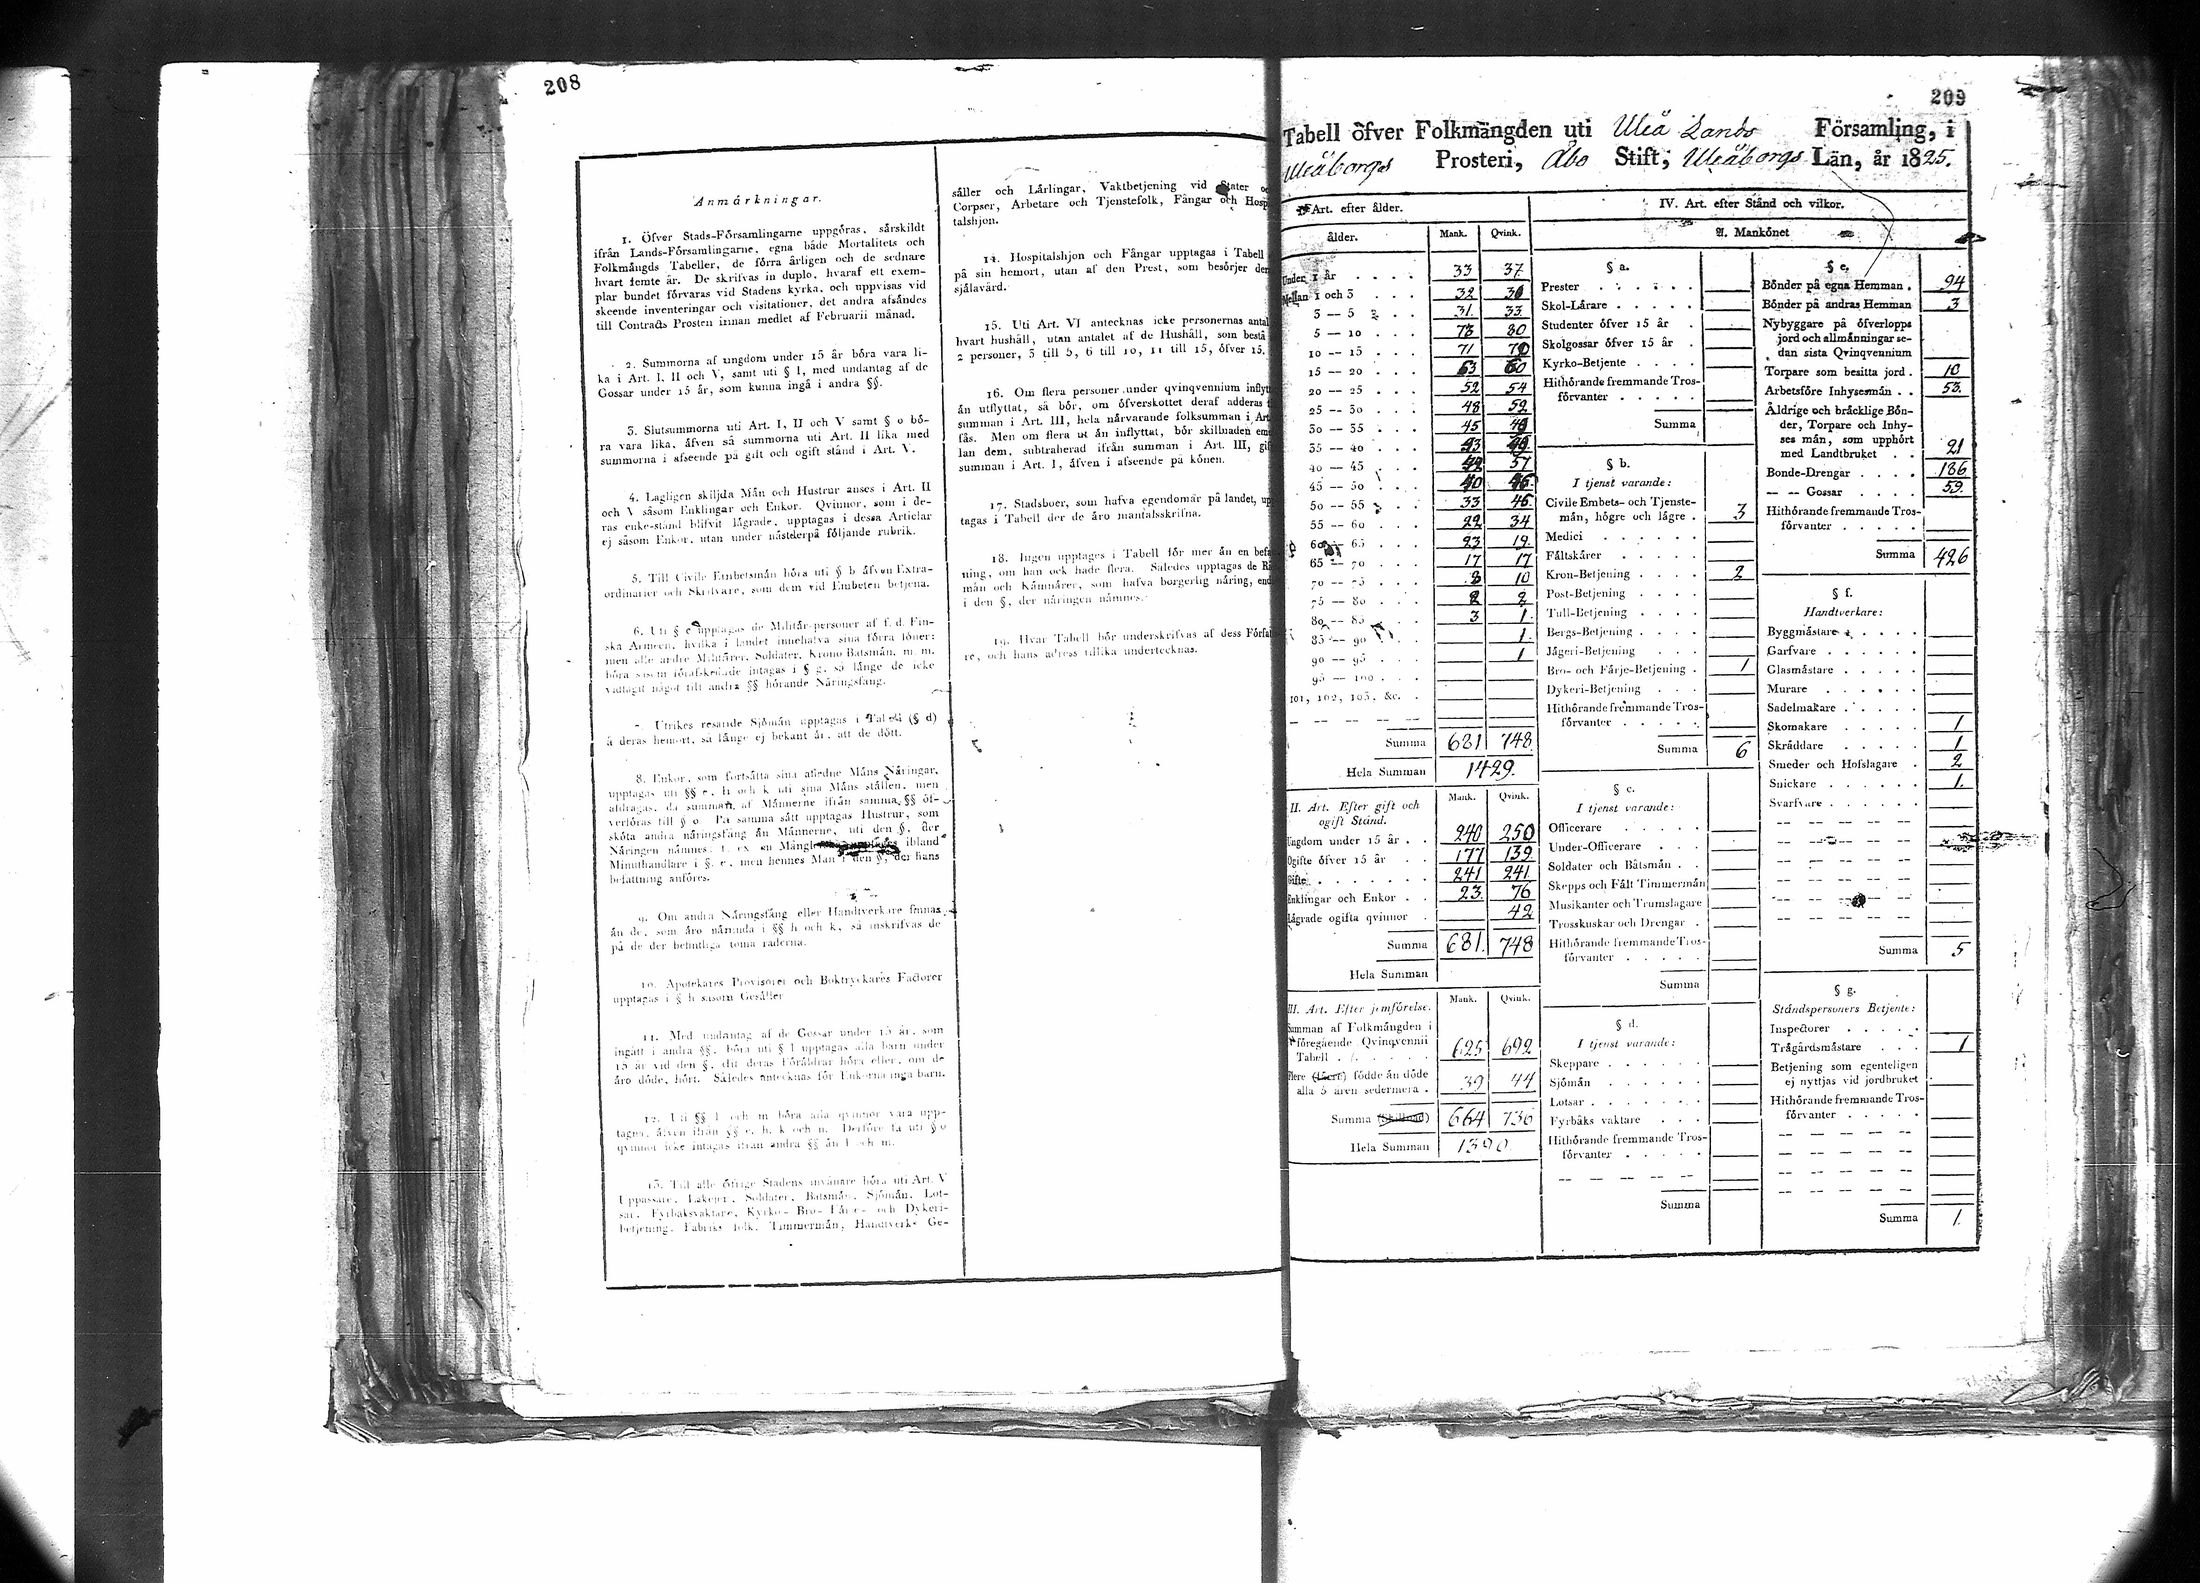 208
Anmärkningar.
1. Öfver Stads-Församlingarne uppgöras, särskildt
ifrån Lands-Församlingarne, egna både Mortalitets och
Folkmängds Tabeller, de förra årligen och de sednare
hvart femte år. De skrifvas in duplo, hvaraf ett exem-
plar bundet förvaras vid Stadens kyrka, och uppvisas vid
skeende inventeringar och visitationer, det andra afsändes
till Contracts Prosten innan medlet af Februarii månad.
2. Summorna af ungdom under 15 år böra vara li-
ka i Art. I, II och V, samt uti § l, med undantag af de
Gossar under 15 år, som kunna ingå i andra §§.
3. Slutsummorna uti Art. I, II och V samt § o bö-
ra vara lika, äfven så summorna uti Art. II lika med
summorna i afseende på gift och ogift stånd i Art. V.
4. Lagligen skiljda Män och Hustrur anses i Art. II
och V såsom Enklingar och Enkor. Qvinnor, som i de-
ras enke-stånd blifvit lägrade, upptagas i dessa Articlar
ej såsom Enkor, utan under nästefterpå följande rubrik.
5. Till Civile Embetsmän höra uti § b äfven Extra-
ordinarier och Skrifvare, som dem vid Embeten betjena.
6. Uti § c upptagas de Militär-personer af f. d. Fin-
ska Armeen, hvilka i landet innehafva sina förra löner:
men alle andre Militärer, Soldater, Krono Båtsmän, m. m.
höra såsom förafskedade intagas i § g, så länge de icke
vidtagit något till andra §§ hörande Näringsfång.
7. Utrikes resande Sjömän upptagas i Tabell (§ d)
å deras hemort, så länge ej bekant är, att de dött.
8. Enkor, som fortsätta sina aflednе Mäns Näringar,
upptagas uti §§ e, h och k uti sina Mäns ställen, men
afdragas, då summan af Männerne ifrån samma §§ öf-
verföras till § o. På samma sätt upptagas Hustrur, som
sköta andra näringsfång än Männerne, uti den §, der
Näringen nämnes, t. ex. en Mångl ibland
Minuthandlare i §. e, men hennes Man i den §, der hans
befattning anföres.
9. Om andra Näringsfång eller Handtverkare finnas
än de, som äro nämnda i §§ h och k, så inskrifvas de
på de der befintliga toma raderna.
10. Apotekares Provisorer och Boktryckares Factorer
upptagas i § h såsom Gesäller
11. Med undantag af de Gossar under 15 år, som
ingått i andra §§, böra uti § l upptagas alla barn under
15 år vid den §, dit deras Föräldrar höra eller, om de
äro döde, hört. Således antecknas för Enkorna inga barn.
12. Uti §§ l och m böra alla qvinnor vara upp-
tagna, äfven ifrån §§ e, h, k och n. Derföre få uti § o
qvinnor icke intagas ifrån andra §§ än l och m.
13. Till alle öfrige Stadens invånare höra uti Art. V
Uppassare, Lakejer, Soldater, Båtsmän, Sjömän, Lot-
sar, Fyrbåksvaktare, Kyrko- Bro- Färje- och Dykeri-
betjening, Fabriks folk, Timmermän, Handtverks Ge-
säller och Lärlingar, Vaktbetjening vid Stater
Corpser, Arbetare och Tjenstefolk, Fångar och Hosp
talshjon.
14. Hospitalshjon och Fångar upptagas i Tabell
på sin hemort, utan af den Prest, som besörjer
själavård.
15. Uti Art. VI antecknas icke personernas antal
hvart hushåll, utan antalet af de Hushåll, som bestå
2 personer, 3 till 5, 6 till 10, 11 till 15, öfver 15.
16. Om flera personer under qvinqvennium inflyt
än utflyttat, så bör, om öfverskottet deraf adderas
summan i Art. III, hela närvarande folksumman i Art
fås. Men om flera ut än inflyttat, bör skillnaden
lan dem, subtraherad ifrån summan i Art. III,
summan i Art. I, äfven i afseende på könen.
17. Stadsboer, som hafva egendomar på landet, up
tagas i Tabell der de äro mantalsskrifna.
18. Ingen upptages i Tabell för mer än en befa
ning, om han ock hade flera. Således upptagas de
män och Kämnärer, som hafva borgerlig näring,
i den §, der näringen nämnes.
19. Hvar Tabell bör underskrifvas af dess Förfat
re, och hans adress tillika undertecknas.
209
Tabell öfver Folkmängden uti Uleå Lands Församling, i
Uleåborgs Prosteri, Åbo Stift, Uleåborgs Län, år 1825.
Art. efter ålder.
ålder. Mank. Qvink.
Under 1 år 33 37
Mellan 1 och 3 32 30
3 — 5 31 33
5 — 10 73 80
10 — 15 71 70
15 — 20 63 60
20 — 25 52 54
25 — 30 48 59
30 — 35 45
35 — 40
40 — 45 57
45 — 50
50 — 55 33 46
55 — 60 22 34
60 — 65 23 19.
65 — 70 17 17
70 — 75 8 10
75 — 80 2 2
80 — 85 3 1.
85 — 90 1.
90 — 95 1
95 — 100
101, 102, 103, &c.
Summa 681 748
Hela Summan 1429.
II. Art. Efter gift och
ogift Stånd.
Mank. Qvink.
Ungdom under 15 år 240 250
Ogifte öfver 15 år 177 139
Gifte 241 241
Enklingar och Enkor 23. 76
Lägrade ogifta qvinnor 42
Summa 681. 748
Hela Summan
III. Art. Efter jemförelse.
Mank. Qvink.
Summan af Folkmängden i
föregående Qvinqvennii
Tabell 625 692
Flere (färre) födde än döde
alla 5 åren sedermera 39 44
Summa (Skillnad) 664 736
Hela Summan 1390
IV. Art. efter Stånd och vilkor.
A. Mankönet
§ a.
Prester
Skol-Lärare
Studenter öfver 15 år
Skolgossar öfver 15 år
Kyrko-Betjente
Hithörande fremmande Tros-
förvanter
Summa
§ b.
I tjenst varande:
Civile Embets- och Tjenste-
män, högre och lägre 3
Medici
Fältskärer
Kron-Betjening 2
Post-Betjening
Tull-Betjening
Bergs-Betjening
Jägeri-Betjening
Bro- och Färje-Betjening 1
Dykeri-Betjening
Hithörande fremmande Tros-
förvanter
Summa 6
§ c.
I tjenst varande:
Officerare
Under-Officerare
Soldater och Båtsmän
Skepps och Fält Timmermän
Musikanter och Trumslagare
Trosskuskar och Drengar
Hithörande fremmande Tros-
förvanter
Summa
§ d.
I tjenst varande:
Skeppare
Sjömän
Lotsar
Fyrbåks vaktare
Hithörande fremmande Tros-
förvanter
Summa
§ e.
Bönder på egna Hemman 94
Bönder på andras Hemman 3
Nybyggare på öfverlopps
jord och allmänningar se-
dan sista Qvinqvennium
Torpare som besitta jord 10
Arbetsföre Inhysesmän 53.
Åldrige och bräcklige Bön-
der, Torpare och Inhy-
ses män, som upphört
med Landtbruket 21
Bonde-Drengar 186
— — Gossar 59.
Hithörande fremmande Tros-
förvanter
Summa 426
§ f.
Handtverkare:
Byggmästare
Garfvare
Glasmästare
Murare
Sadelmakare
Skomakare 1
Skräddare 1
Smeder och Hofslagare 2
Snickare 1.
Svarfvare
Summa 5
§ g.
Ståndspersoners Betjente:
Inspectorer
Trägårdsmästare 1
Betjening som egenteligen
ej nyttjas vid jordbruket
Hithörande fremmande Tros-
förvanter
Summa 1.